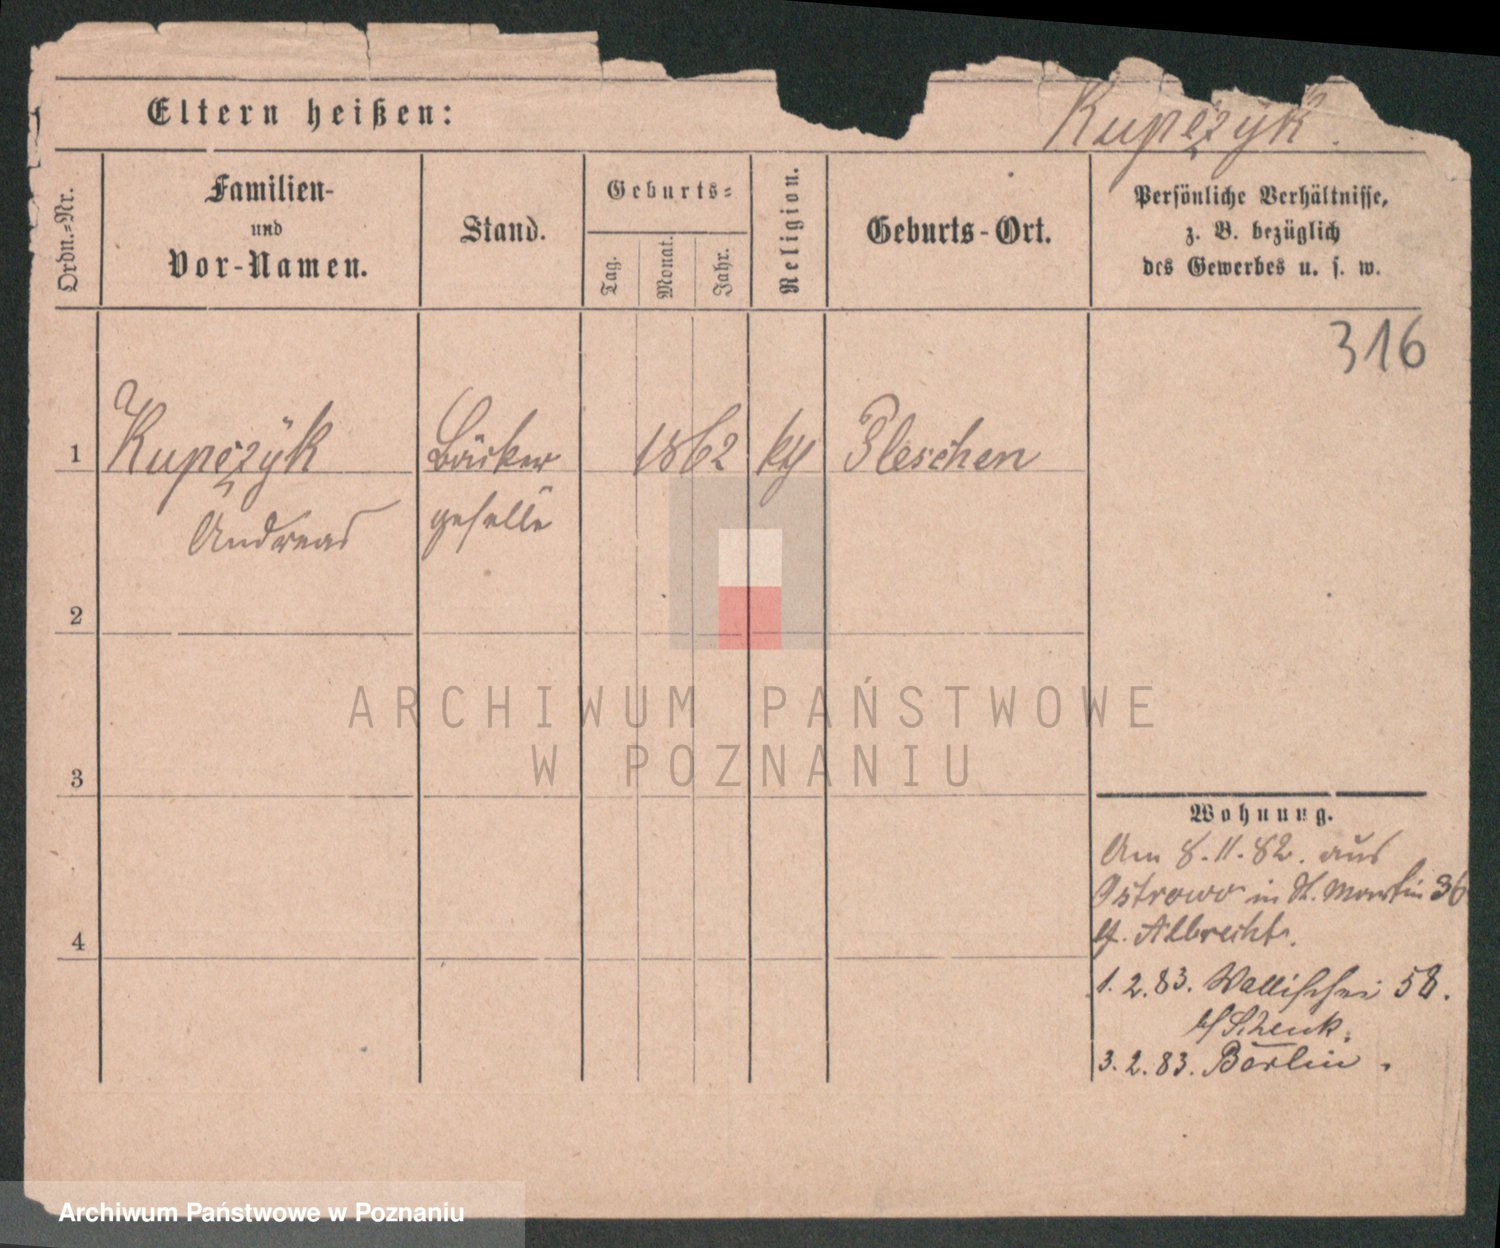 Eltern heißen:
Kupczÿk.
Ordn.-Nr.
Familien-
und
Vor-Namen.
Stand.
Geburts-
Tag.
Monat.
Jahr.
Religion.
Geburts-Ort.
Persönliche Verhältnisse,
z. B. bezüglich
des Gewerbes u. s. w.
316
1
Kupczÿk
Andreas
Bäcker
geselle
1862
Pleschen
2
3
4
ARCHIWUM PAŃSTWOWE
W POZNANIU
Wohnung.
Am 8.11.82. aus
Ostrowo in St. Martin 36
Albrecht.
1.2.83. Wallischei 58.
b/ Schenk.
3.2.83. Berlin.
Archiwum Państwowe w Poznaniu